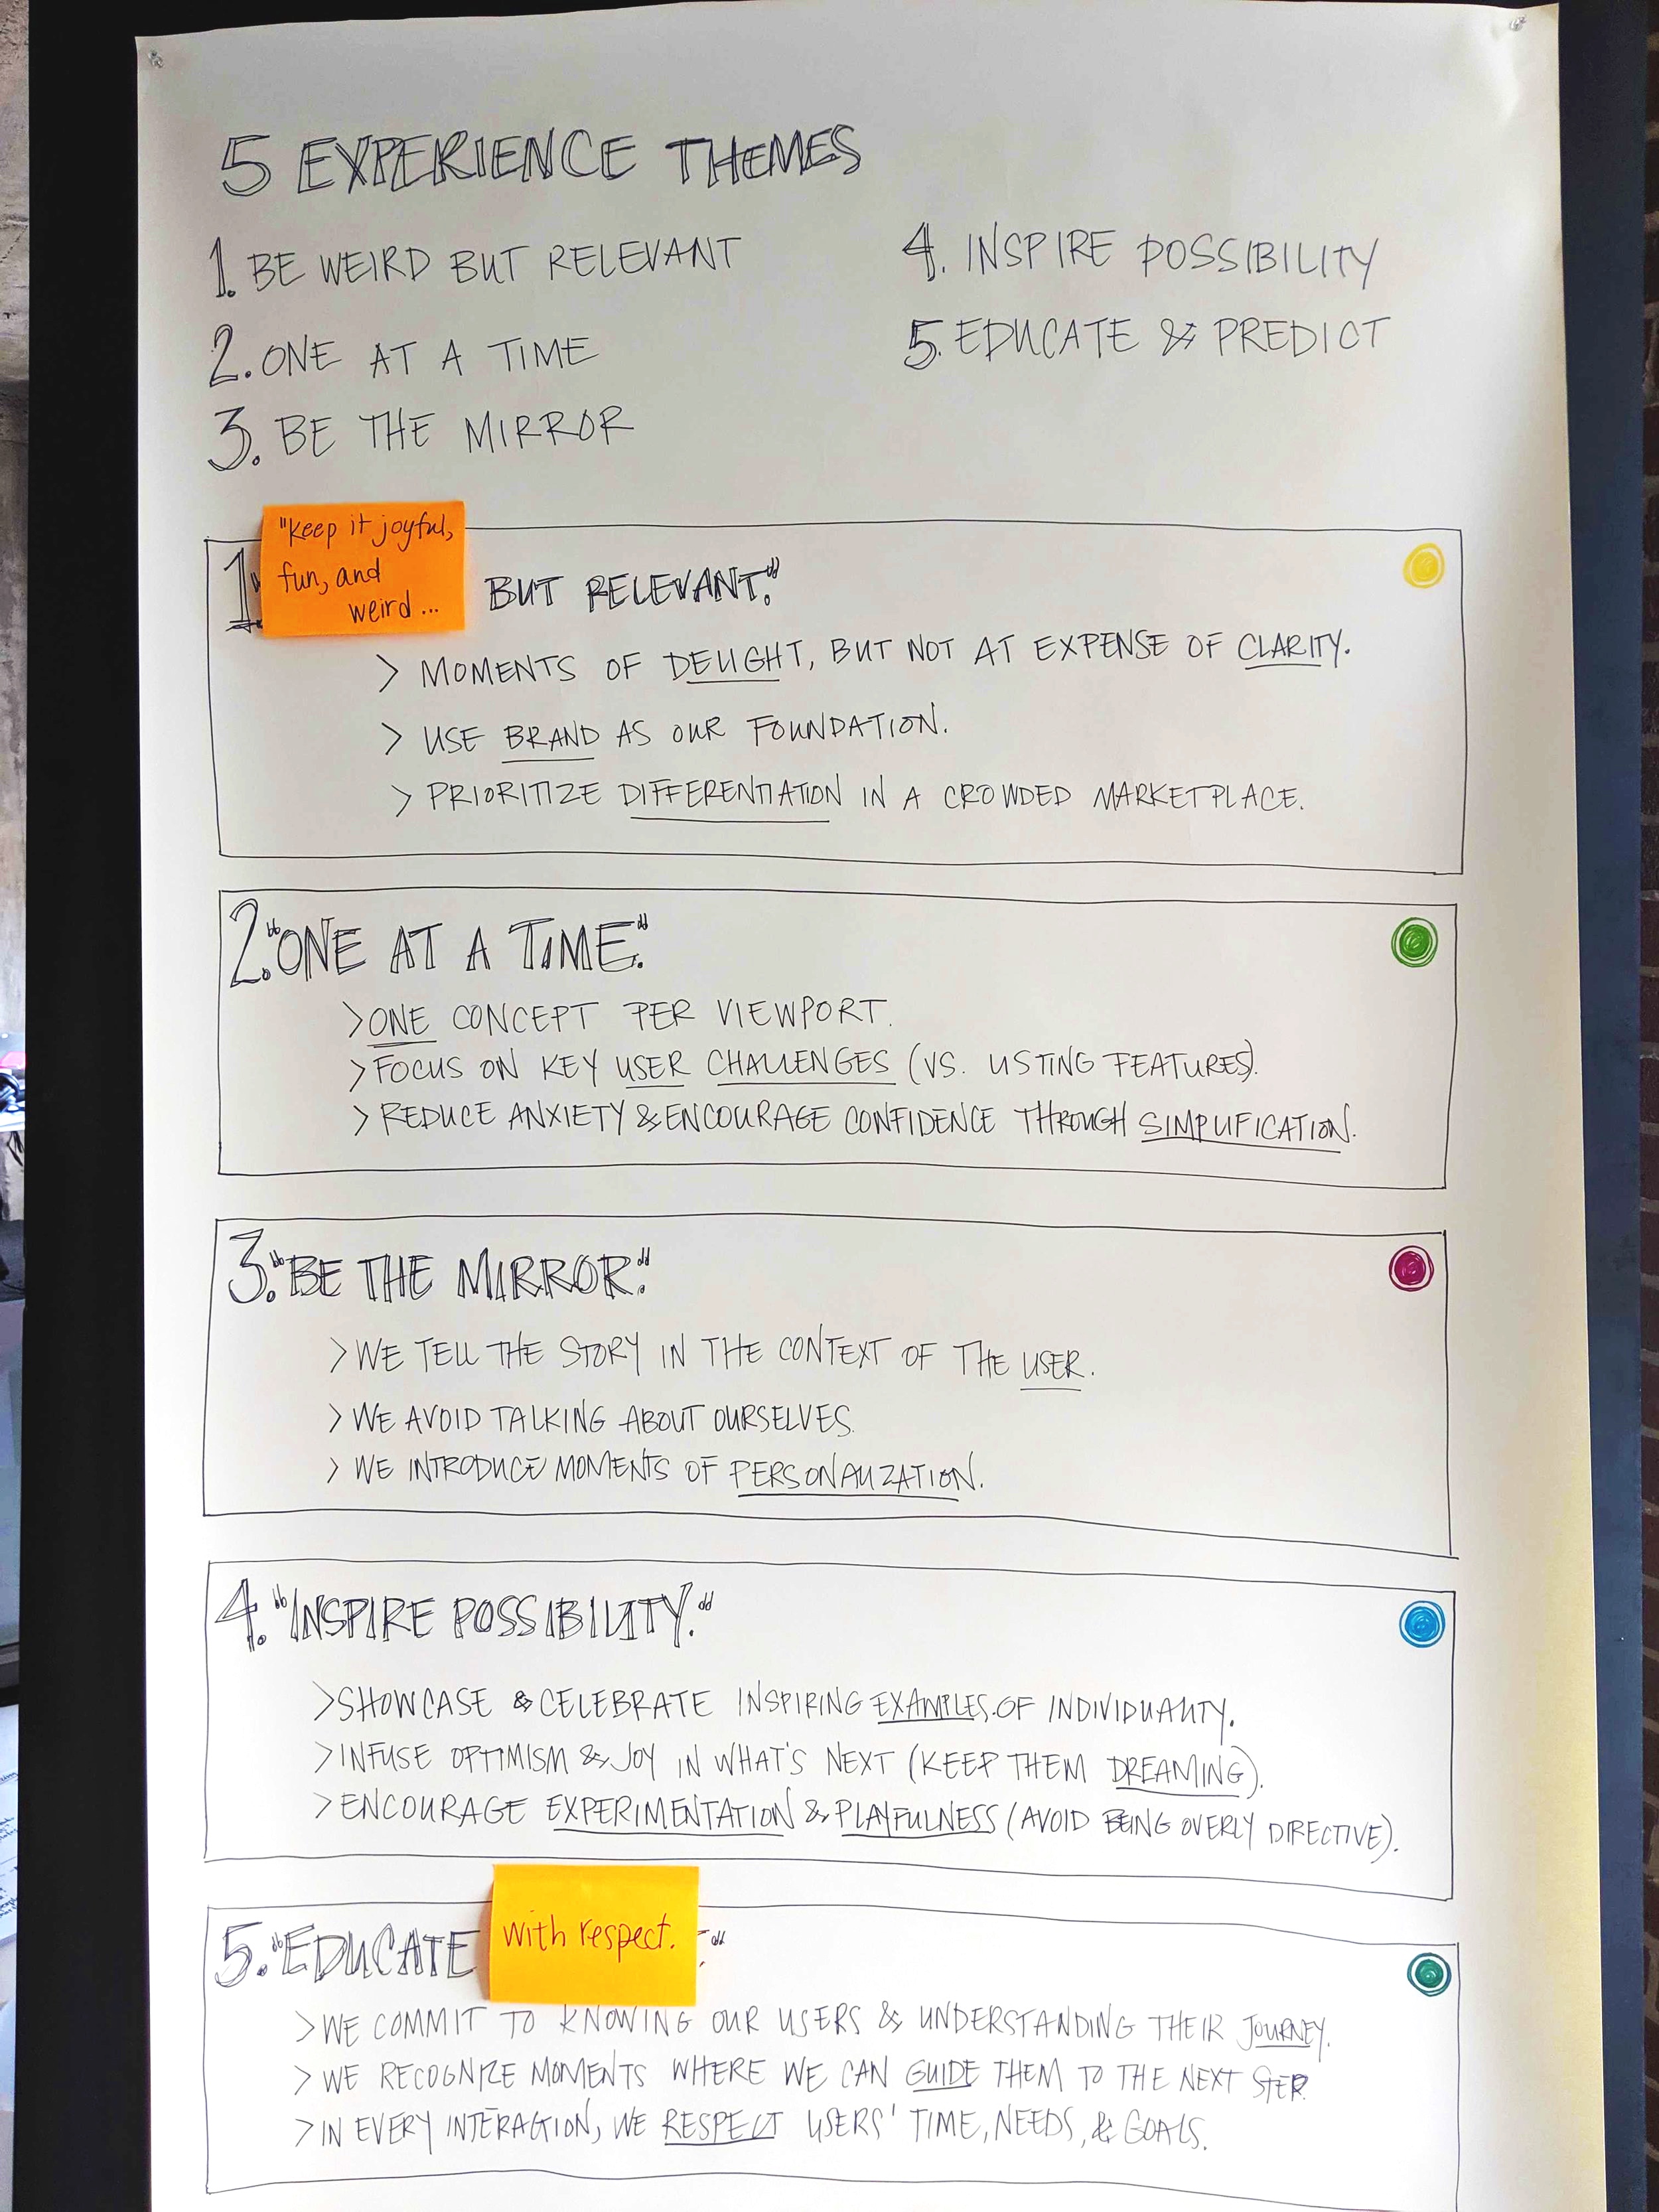 5 EXPERIENCE THEMES
1. BE WEIRD BUT RELEVANT
2. ONE AT A TIME
3. BE THE MIRROR
4. INSPIRE POSSIBILITY
5. EDUCATE & PREDICT
"Keep it joyful,
fun, and
weird...
1. BUT RELEVANT."
> MOMENTS OF DELIGHT, BUT NOT AT EXPENSE OF CLARITY.
> USE BRAND AS OUR FOUNDATION.
> PRIORITIZE DIFFERENTIATION IN A CROWDED MARKETPLACE.
2. "ONE AT A TIME."
> ONE CONCEPT PER VIEWPORT.
> FOCUS ON KEY USER CHALLENGES (VS. LISTING FEATURES).
> REDUCE ANXIETY & ENCOURAGE CONFIDENCE THROUGH SIMPLIFICATION.
3. "BE THE MIRROR."
> WE TELL THE STORY IN THE CONTEXT OF THE USER.
> WE AVOID TALKING ABOUT OURSELVES.
> WE INTRODUCE MOMENTS OF PERSONALIZATION.
4. "INSPIRE POSSIBILITY."
> SHOWCASE & CELEBRATE INSPIRING EXAMPLES OF INDIVIDUALITY.
> INFUSE OPTIMISM & JOY IN WHAT'S NEXT (KEEP THEM DREAMING).
> ENCOURAGE EXPERIMENTATION & PLAYFULNESS (AVOID BEING OVERLY DIRECTIVE).
5. "EDUCATE with respect. "
> WE COMMIT TO KNOWING OUR USERS & UNDERSTANDING THEIR JOURNEY.
> WE RECOGNIZE MOMENTS WHERE WE CAN GUIDE THEM TO THE NEXT STEP.
> IN EVERY INTERACTION, WE RESPECT USERS' TIME, NEEDS, & GOALS.